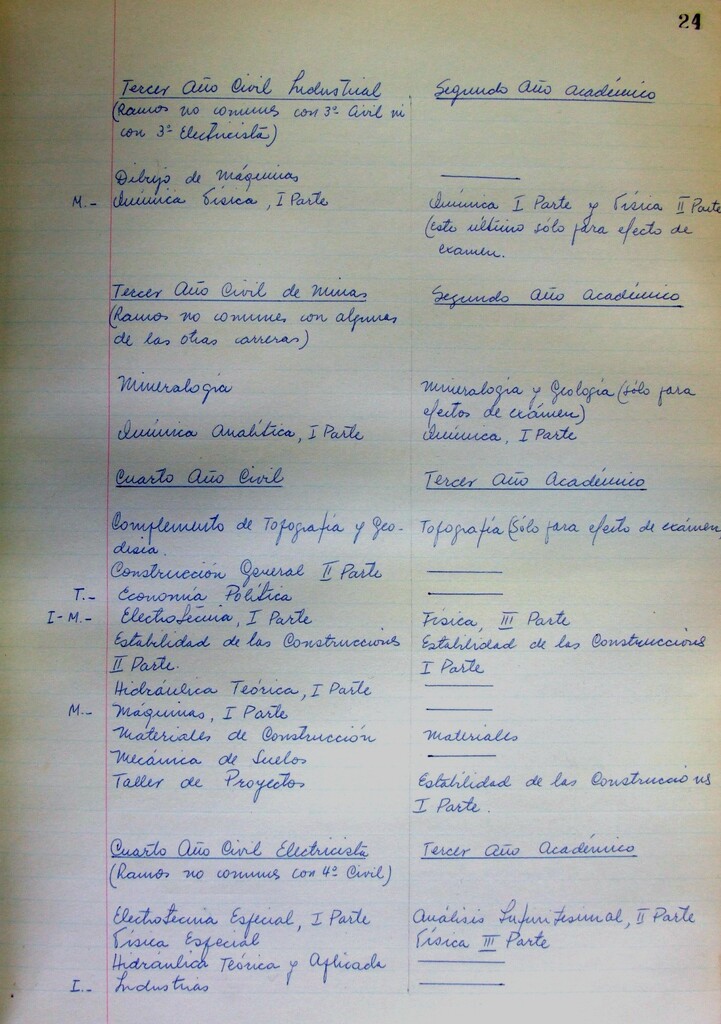 24
Tercer Año Civil Industrial
Segundo Año Académico
(Ramos no comunes con 3º Civil ni
con 3º Electricista)
Dibujo de Máquinas
———
M.- Química Física, I Parte
Química I Parte y Física II Parte
(este último sólo para efecto de
examen.
Tercer Año Civil de Minas
Segundo Año Académico
(Ramos no comunes con algunas
de las otras carreras)
Mineralogía
Mineralogía y Geología (sólo para
efectos de exámen)
Química Analítica, I Parte
Química, I Parte
Cuarto Año Civil
Tercer Año Académico
Complemento de Topografía y Geo-
desia.
Topografía (Sólo para efecto de exámen,
Construcción General II Parte
———
T.- Economía Política
———
I-M.- Electrotecnia, I Parte
Física, III Parte
Estabilidad de las Construcciones
II Parte.
Estabilidad de las Construcciones
I Parte
Hidráulica Teórica, I Parte
———
M.- Máquinas, I Parte
———
Materiales de Construcción
Materiales
Mecánica de Suelos
———
Taller de Proyectos
Estabilidad de las Construcciones
I Parte.
Cuarto Año Civil Electricista
Tercer Año Académico
(Ramos no comunes con 4º Civil)
Electrotecnia Especial, I Parte
Análisis Infinitesimal, II Parte
Física Especial
Física III Parte
Hidráulica Teórica y Aplicada
———
I.- Industrias
———